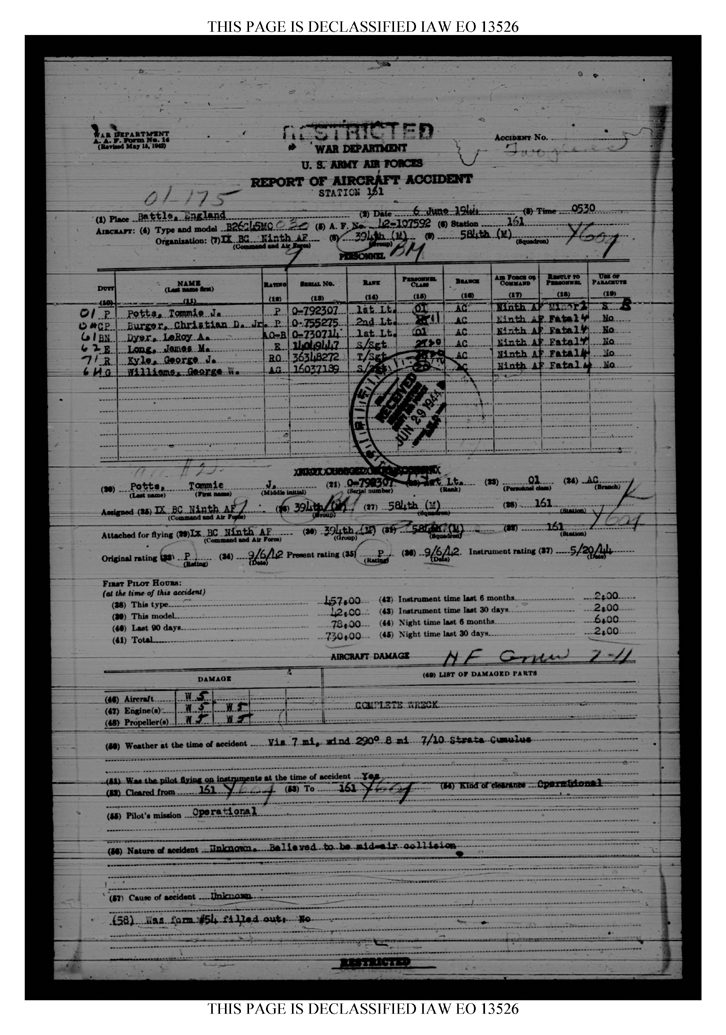 THIS PAGE IS DECLASSIFIED IAW EO 13526
WAR DEPARTMENT
A. A. F. Form No. 14
(Revised May 15, 1942)
RESTRICTED
WAR DEPARTMENT
U. S. ARMY AIR FORCES
REPORT OF AIRCRAFT ACCIDENT
STATION 161
ACCIDENT No.
01-175
(1) Place Battle, England (2) Date 6 June 1944 (3) Time 0530
AIRCRAFT: (4) Type and model B26C45MO (5) A. F. No. 42-107592 (6) Station 161
Organization: (7) IX BC Ninth AF (8) 394th (M) (9) 584th (M)
(Command and Air Force) (Group) (Squadron)
PERSONNEL
DUTY NAME (Last name first) RATING SERIAL No. RANK PERSONNEL CLASS BRANCH AIR FORCE OR COMMAND RESULT TO PERSONNEL USE OF PARACHUTE
(10) (11) (12) (13) (14) (15) (16) (17) (18) (19)
P Potts, Tommie J. P O-792307 1st Lt. 01 AC Ninth AF Minor S
CP Burger, Christian D. Jr. P O-755275 2nd Lt. AC Ninth AF Fatal No
BN Dyer, LeRoy A. AO-B O-730714 1st Lt. 01 AC Ninth AF Fatal No
E Long, James M. E 14049447 S/Sgt AC Ninth AF Fatal No
R Kyle, George J. RO 36348272 T/Sgt AC Ninth AF Fatal No
G Williams, George W. AG 16037189 AC Ninth AF Fatal No
RECEIVED
JUN 29 1944
(20) Potts, Tommie J. (21) O-792307 1st Lt. (23) 01 (24) AC
(Last name) (First name) (Middle initial) (Serial number) (Rank) (Personnel class) (Branch)
Assigned (25) IX BC Ninth AF (26) 394th (M) (27) 584th (M) (28) 161
(Command and Air Force) (Group) (Squadron) (Station)
Attached for flying (29) IX BC Ninth AF (30) 394th (M) (31) 584th (M) (32) 161
(Command and Air Force) (Group) (Squadron) (Station)
Original rating (33) P (34) 9/6/42 Present rating (35) P (36) 9/6/42 Instrument rating (37) 5/20/44
(Rating) (Date) (Rating) (Date) (Date)
FIRST PILOT HOURS:
(at the time of this accident)
(38) This type 457:00 (42) Instrument time last 6 months 2:00
(39) This model 42:00 (43) Instrument time last 30 days 2:00
(40) Last 90 days 78:00 (44) Night time last 6 months 6:00
(41) Total 730:00 (45) Night time last 30 days 2:00
AIRCRAFT DAMAGE
DAMAGE (49) LIST OF DAMAGED PARTS
(46) Aircraft W 5
(47) Engine(s) W 5 W 5 COMPLETE WRECK
(48) Propeller(s) W 5 W 5
(50) Weather at the time of accident Vis 7 mi, wind 290° 8 mi 7/10 Strata Cumulus
(51) Was the pilot flying on instruments at the time of accident Yes
(52) Cleared from 161 (53) To 161 (54) Kind of clearance Operational
(55) Pilot's mission Operational
(56) Nature of accident Unknown. Believed to be mid-air collision
(57) Cause of accident Unknown
(58) Was form #54 filled out: No
RESTRICTED
THIS PAGE IS DECLASSIFIED IAW EO 13526